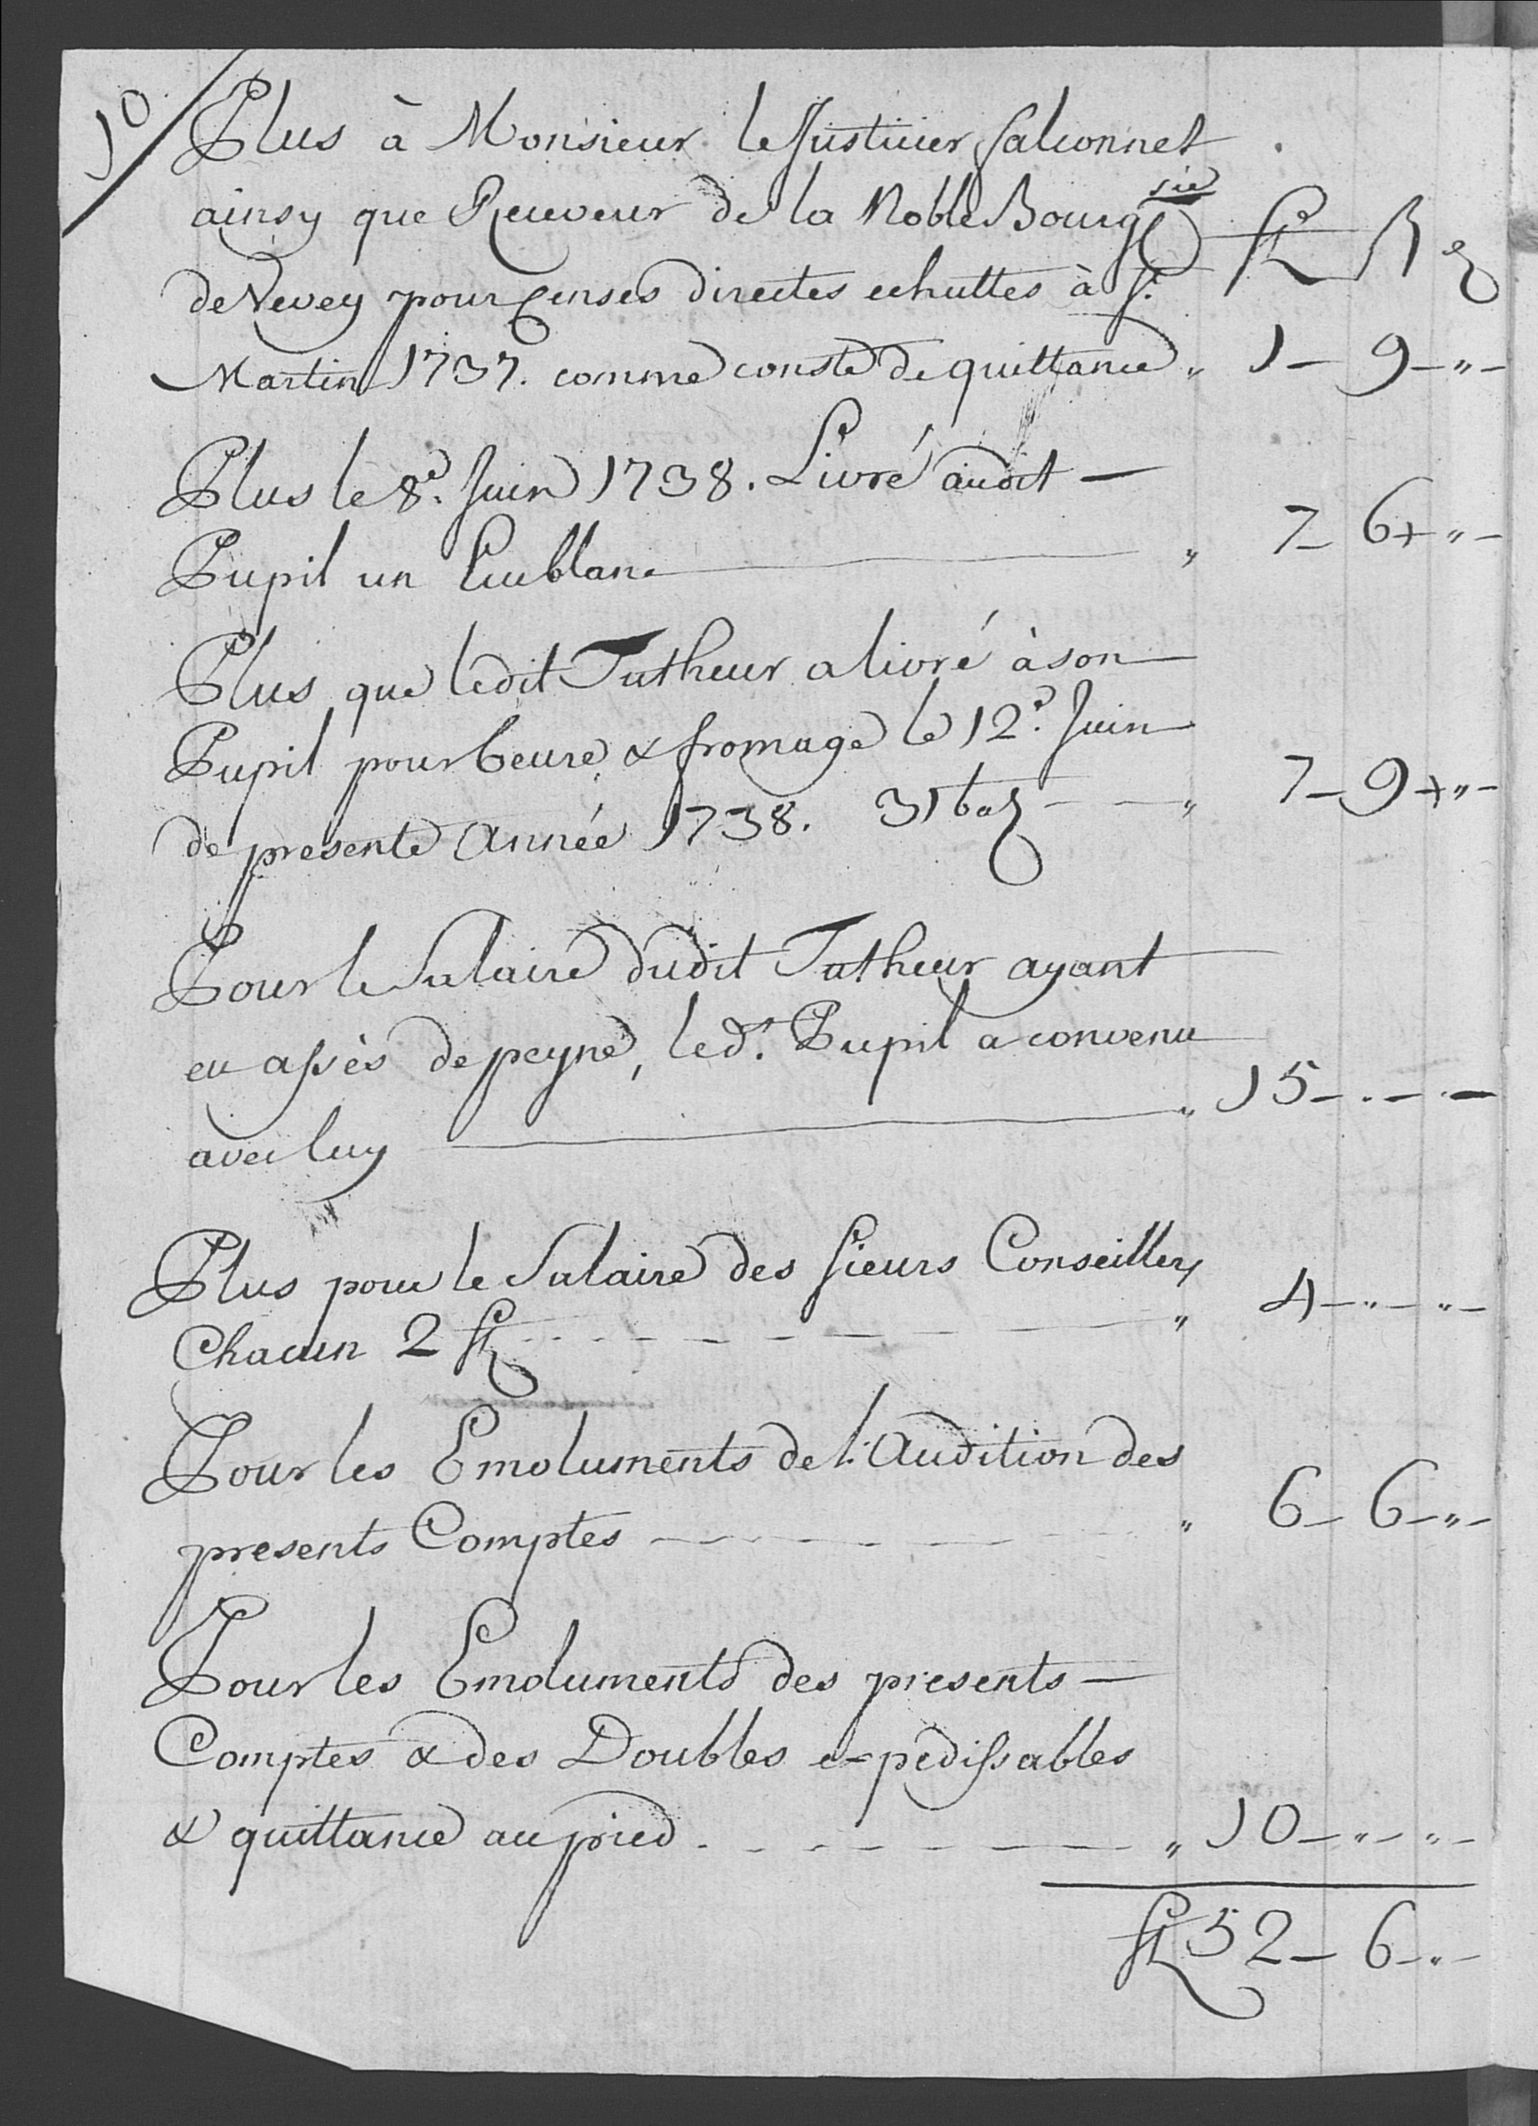 10
Plus à Monsieur le Justicier falconnet
ainsy que Receveur de la Noble Bourg.sie fl ß
de Vevey pour Censes directes echuttes à St.
Martin 1737. comme conste de quittance „ 1 – 9 – „ –
Plus le 8e. Juin 1738. Livré audit —
Pupil un Ecublanc „ 7 – 6 + „ –
Plus que ledit Tutheur a livré à son
Pupil pour beure & fromage le 12e. Juin
de presente Année 1738. 31 baz „ 7 – 9 + „ –
Pour le Salaire dudit Tutheur ayant
eu assès de peyne, led.t Pupil a convenu
avec luy „ 15 – . – . –
Plus pour le Salaire des sieurs Conseillers
Chacun 2 fl „ 4 – „ – „ –
Pour les Emoluments de l'Audition des
presents Comptes „ 6 – 6 – „ –
Pour les Emoluments des presents —
Comptes & des Doubles expedissables
& quittance au pied „ 10 – „ – „ –
fl 52 – 6 – „ –